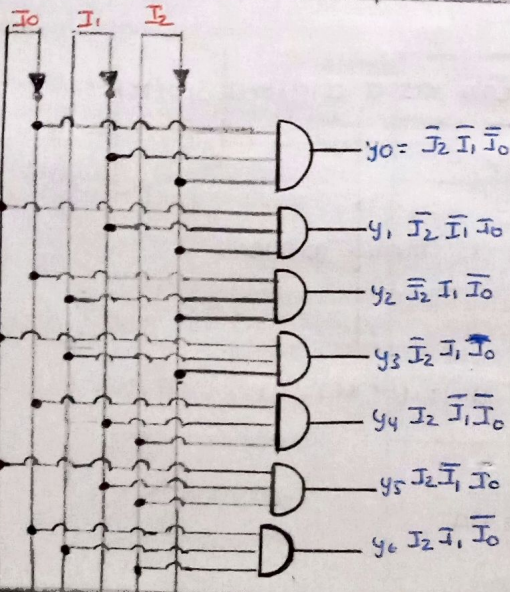 I0 I1 I2
y0 = I̅2 I̅1 I̅0
y1 I̅2 I̅1 I0
y2 I̅2 I1 I̅0
y3 I̅2 I1 I0
y4 I2 I̅1 I̅0
y5 I2 I̅1 I0
y6 I2 I1 I̅0